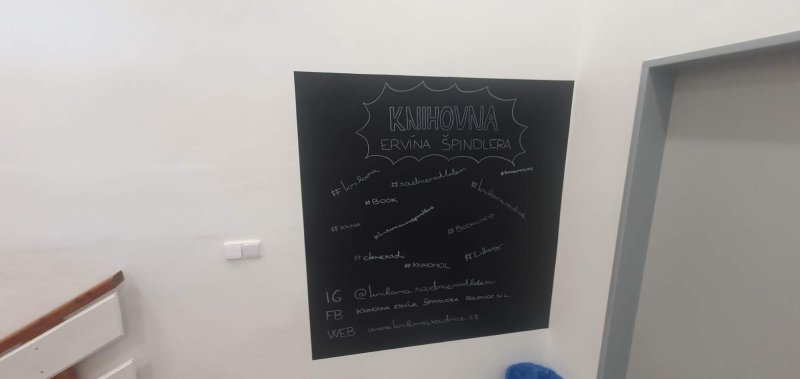 KNIHOVNA
ERVÍNA ŠPINDLERA
#knihovna
#roudnicenadlabem
#BOOK
#KNIHA
#knihovnaervinaspindlera
#BOOKLOVER
#ctemeradi
#KNIHOMOL
IG @knihovna.roudnicenadlabem
FB KNIHOVNA ERVÍNA ŠPINDLERA ROUDNICE N. L.
WEB www.knihovnaroudnice.cz